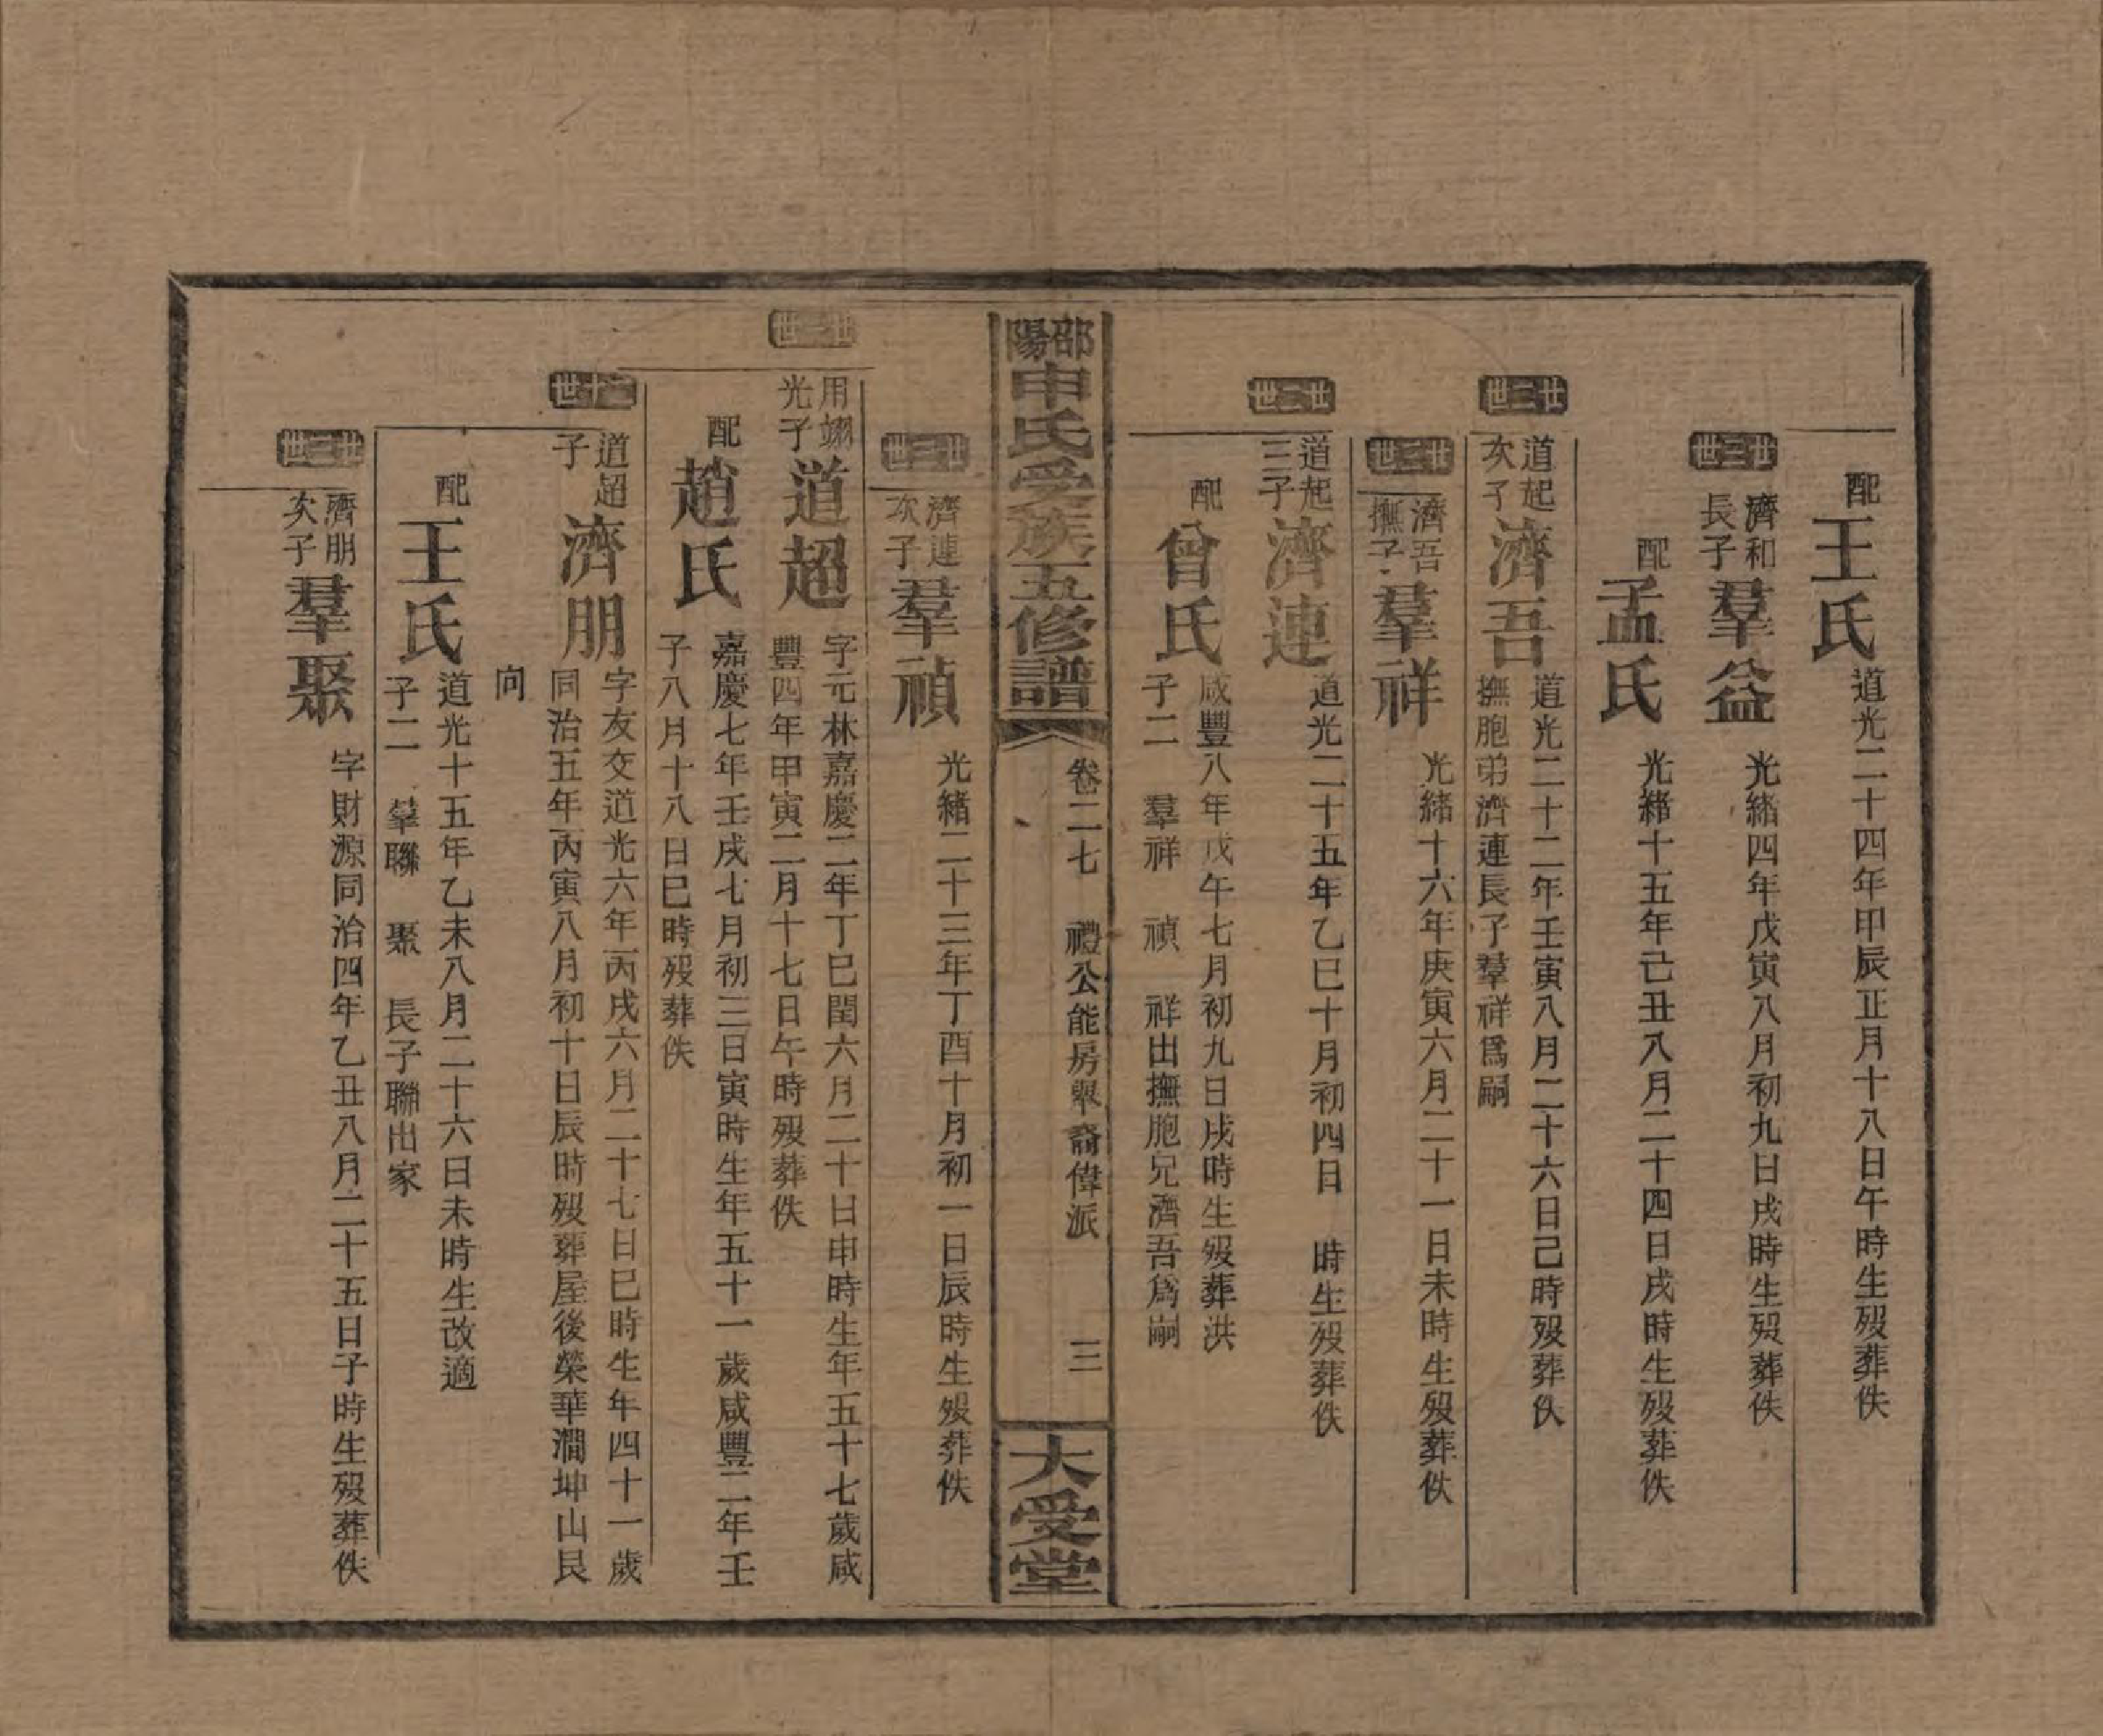 配
王氏
道光二十四年甲辰正月十八日午時生歿葬佚
世三廿
濟和
長子
羣益
光緒四年戊寅八月初九日戌時生歿葬佚
配
孟氏
光緒十五年己丑八月二十四日戌時生歿葬佚
世二廿
道起
次子
濟吾
道光二十二年壬寅八月二十六日己時歿葬佚
撫胞弟濟連長子羣祥爲嗣
世三廿
濟吾
撫子
羣祥
光緒十六年庚寅六月二十一日未時生歿葬佚
世二廿
道起
三子
濟連
道光二十五年乙巳十月初四日 時生歿葬佚
配
曾氏
咸豐八年戊午七月初九日戌時生歿葬洪
子二 羣祥 禎 祥出撫胞兄濟吾爲嗣
邵陽申氏受族五修譜
卷二七 禮公能房舉裔偉派 三
大受堂
世三廿
濟連
次子
羣禎
光緒二十三年丁酉十月初一日辰時生歿葬佚
用翊
光子
道超
字元林嘉慶二年丁巳閏六月二十日申時生年五十七歲咸
豐四年甲寅二月十七日午時歿葬佚
配
趙氏
嘉慶七年壬戌七月初三日寅時生年五十一歲咸豐二年壬
子八月十八日巳時歿葬佚
道超
子
濟朋
字友交道光六年丙戌六月二十七日巳時生年四十一歲
同治五年丙寅八月初十日辰時歿葬屋後榮華澗坤山艮
向
配
王氏
道光十五年乙未八月二十六日未時生改適
子二 羣聯 聚 長子聯出家
世三廿
濟朋
次子
羣聚
字財源同治四年乙丑八月二十五日子時生歿葬佚